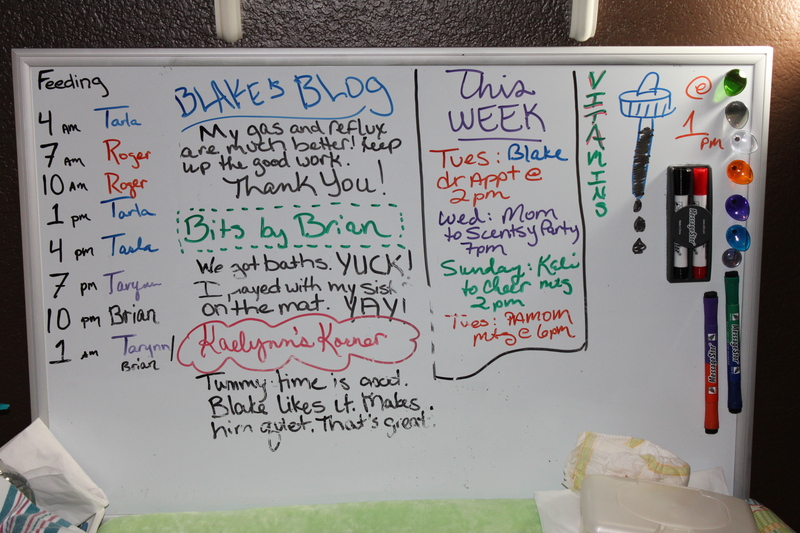 Feeding
4 AM Tarla
7 AM Roger
10 AM Roger
1 pm Tarla
4 pm Tarla
7 pm Tarynn
10 pm Brian
1 AM Tarynn/
Brian
BLAKE'S BLOG
My gas and reflux
are much better! Keep
up the good work.
Thank You!
Bits by Brian
We got baths. YUCK!
I played with my sis
on the mat. YAY!
Kaelynn's Korner
Tummy time is good.
Blake likes it. Makes
him quiet. That's great.
This
WEEK
Tues: Blake
dr Appt @
2 pm
Wed: Mom
to Scentsy Party
7pm
Sunday: Kali
to Cheer mtg
2 pm
Tues: PAMOM
mtg @ 6pm
VITAMINS
@
1
pm